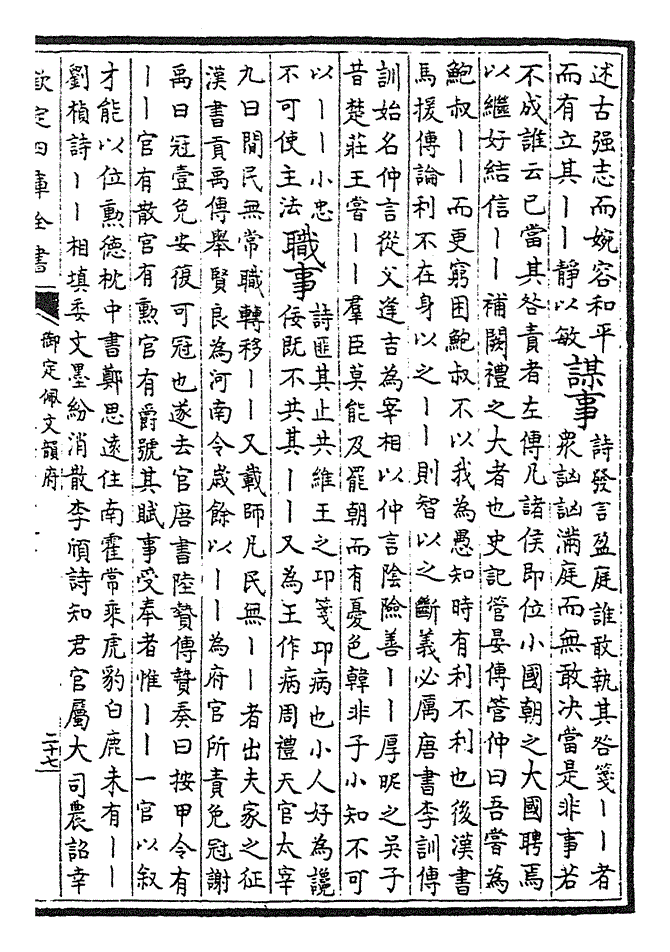 述古强志而婉容和平
而有立其〡〡静以敏
謀事
詩發言盈庭誰敢執其咎箋〡〡者
衆訩訩滿庭而無敢决當是非事若
不成誰云已當其咎責者左傳凡諸侯即位小國朝之大國聘焉
以繼好結信〡〡補闕禮之大者也史記管晏傳管仲曰吾嘗為
鮑叔〡〡而更窮困鮑叔不以我為愚知時有利不利也後漢書
馬援傳論利不在身以之〡〡則智以之斷義必厲唐書李訓傳
訓始名仲言從父逢吉為宰相以仲言陰險善〡〡厚昵之吳子
昔楚莊王嘗〡〡羣臣莫能及罷朝而有憂色韓非子小知不可
以〡〡小忠
不可使主法
職事
詩匪其止共維王之卭箋卭病也小人好為讒
佞既不共其〡〡又為王作病周禮天官太宰
九曰閒民無常職轉移〡〡又載師凡民無〡〡者出夫家之征
漢書貢禹傳舉賢良為河南令歲餘以〡〡為府官所責免冠謝
禹曰冠壹免安復可冠也遂去官唐書陸贄傳贄奏曰按甲令有
〡〡官有散官有勲官有爵號其賦事受奉者惟〡〡一官以叙
才能以位勲德枕中書鄭思遠住南霍常乘虎豹白鹿未有〡〡
劉楨詩〡〡相填委文墨紛消散李頎詩知君官屬大司農詔幸
欽定四庫全書
御定佩文韻府
二十七